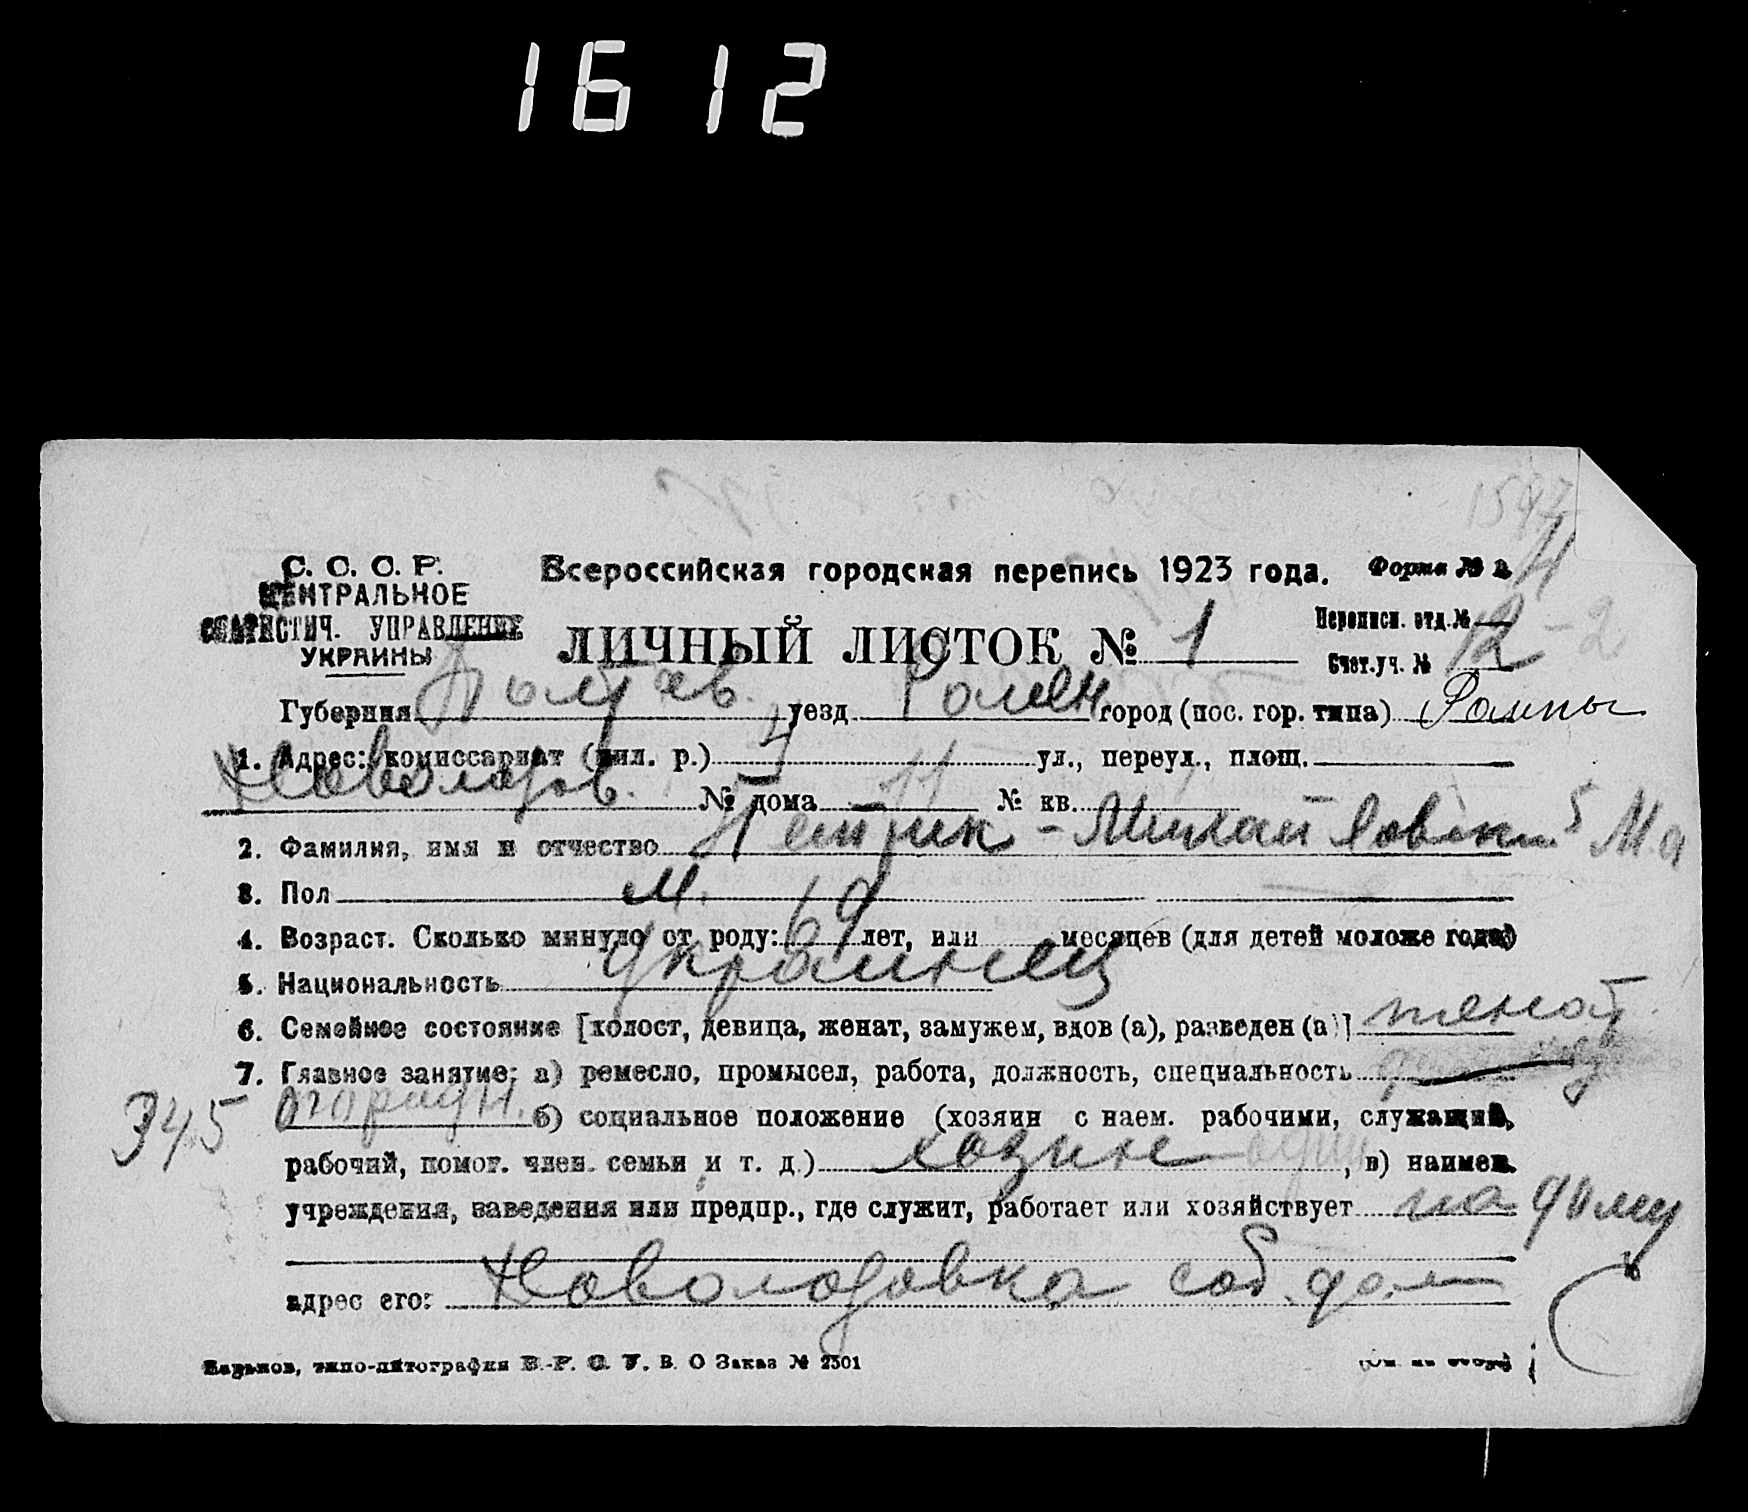 1612
1597
С. С. С. Р.
ЦЕНТРАЛЬНОЕ
СТАТИСТИЧ. УПРАВЛЕНИЕ
УКРАИНЫ
Всероссийская городская перепись 1923 года. Форма № 2
ЛИЧНЫЙ ЛИСТОК № 1
Переписн. отд. №
Счет. уч. № 12-2
Губерния Полтав. уезд Ромен город (пос. гор. типа) Ромны
1. Адрес: комиссариат (мил. р.) 4 ул., переул., площ.
№ дома 11 № кв.
2. Фамилия, имя и отчество Петрик - Михай
3. Пол м.
4. Возраст. Сколько минуло от роду: 69 лет, или месяцев (для детей моложе года)
5. Национальность Украинец
6. Семейное состояние [холост, девица, женат, замужем, вдов (а), разведен (а)] женат
7. Главное занятие: а) ремесло, промысел, работа, должность, специальность
345 огородн. б) социальное положение (хозяин с наем. рабочими, служащий,
рабочий, помог. член. семьи и т. д.) хозяин один, в) наимен.
учреждения, заведения или предпр., где служит, работает или хозяйствует на дому
адрес его: соб. дом
Харьков, типо-литография В. О Заказ № 2301
(См. на обор.)